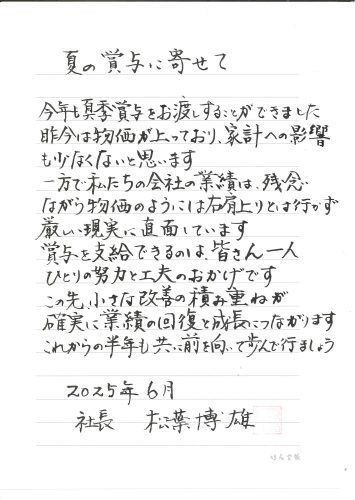 夏の賞与に寄せて
今年も夏季賞与をお渡しすることができました
昨今は物価が上っており、家計への影響
も少なくないと思います
一方で私たちの会社の業績は、残念
ながら物価のようには右肩上りとは行かず
厳しい現実に直面しています
賞与を支給できるのは、皆さん一人
ひとりの努力と工夫のおかげです
この先、小さな改善の積み重ねが
確実に業績の回復と成長につながります
これからの半年も共に前を向いて歩んで行ましょう
2025年6月
社長 松葉博雄